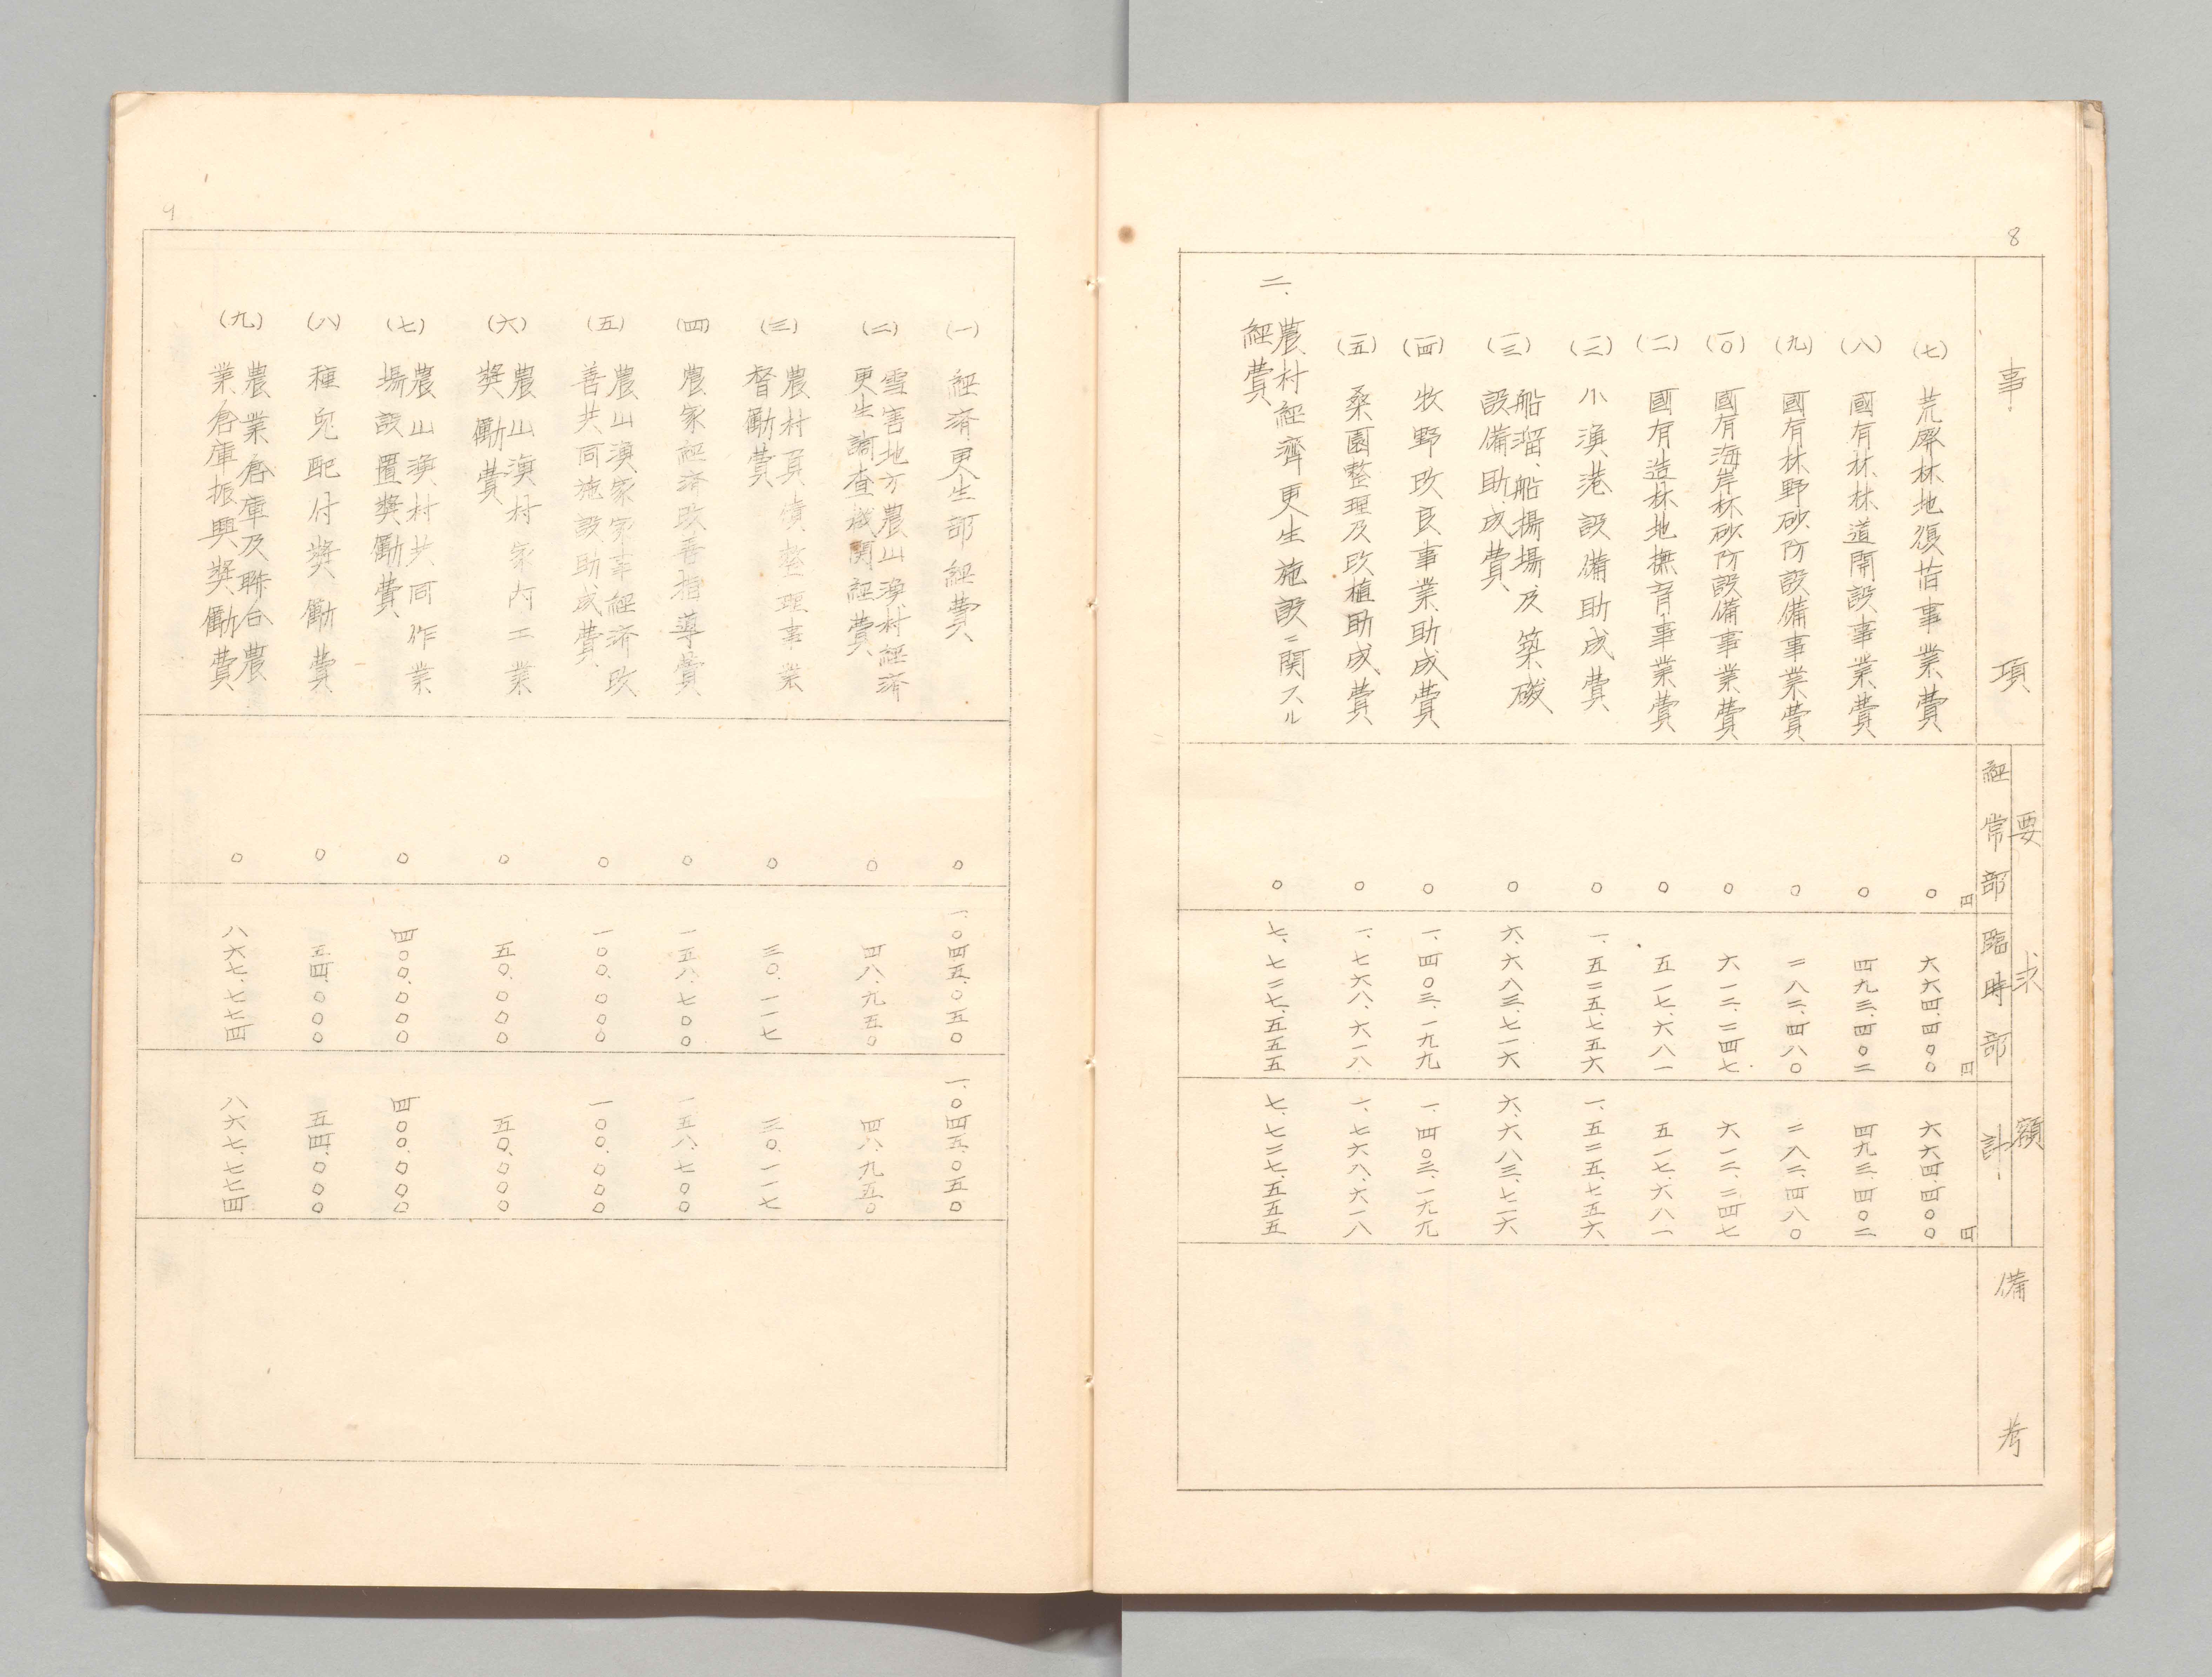 8
事項
要求額
經常部
臨時部
計
備考
円
円
円
(七) 荒廢林地復旧事業費 ○ 六六四、四〇〇 六六四、四〇〇
(八) 國有林林道開設事業費 ○ 四九三、四〇二 四九三、四〇二
(九) 國有林野砂防設備事業費 ○ 二八二、四八〇 二八二、四八〇
(一〇) 國有海岸林砂防設備事業費 ○ 六一二、二四七 六一二、二四七
(一一) 國有造林地撫育事業費 ○ 五一七、六八一 五一七、六八一
(一二) 小漁港設備助成費 ○ 一、五二五、七五六 一、五二五、七五六
(一三) 船溜、船揚場及築磯
設備助成費 ○ 六、六八三、七一六 六、六八三、七一六
(一四) 牧野改良事業助成費 ○ 一、四〇三、一九九 一、四〇三、一九九
(一五) 桑園整理及改植助成費 ○ 一、七六八、六一八 一、七六八、六一八
二、農村経濟更生施設ニ関スル
経費 ○ 七、七二七、五五五 七、七二七、五五五
9
(一) 経済更生部経費 ○ 一、〇四五、〇五〇 一、〇四五、〇五〇
(二) 雪害地方農山漁村経済
更生調査機関経費 ○ 四八、九五〇 四八、九五〇
(三) 農村負債整理事業
督勵費 ○ 三〇、一一七 三〇、一一七
(四) 農家経済改善指導費 ○ 一五八、七〇〇 一五八、七〇〇
(五) 農山漁家家事経済改
善共同施設助成費 ○ 一〇〇、〇〇〇 一〇〇、〇〇〇
(六) 農山漁村家内工業
奬勵費 ○ 五〇、〇〇〇 五〇、〇〇〇
(七) 農山漁村共同作業
場設置奬勵費 ○ 四〇〇、〇〇〇 四〇〇、〇〇〇
(八) 種兎配付奬勵費 ○ 五四、〇〇〇 五四、〇〇〇
(九) 農業倉庫及聯合農
業倉庫振興奬勵費 ○ 八六七、七七四 八六七、七七四